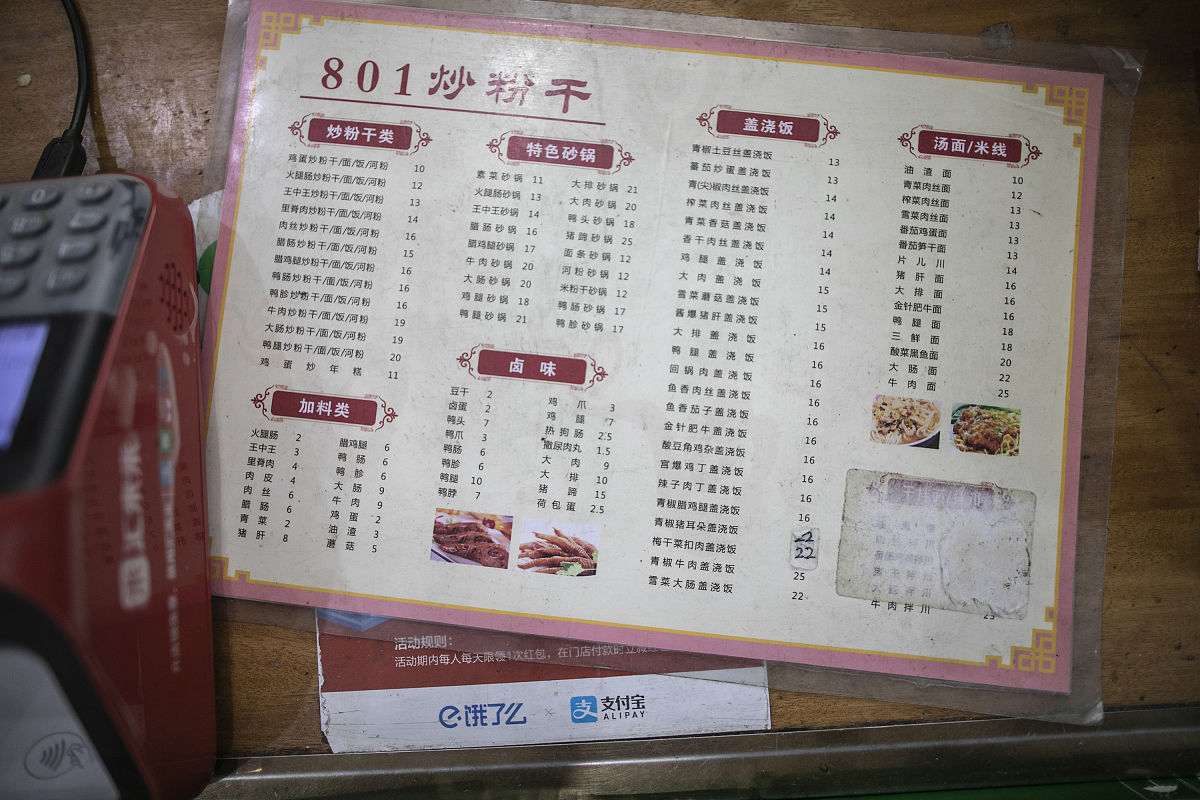 801炒粉干
炒粉干类
鸡蛋炒粉干/面/饭/河粉 10
火腿肠炒粉干/面/饭/河粉 12
王中王炒粉干/面/饭/河粉 13
里脊肉炒粉干/面/饭/河粉 14
肉丝炒粉干/面/饭/河粉 16
腊肠炒粉干/面/饭/河粉 15
腊鸡腿炒粉干/面/饭/河粉 16
鸭肠炒粉干/面/饭/河粉 16
鸭胗炒粉干/面/饭/河粉 16
牛肉炒粉干/面/饭/河粉 19
大肠炒粉干/面/饭/河粉 19
鸭腿炒粉干/面/饭/河粉 20
鸡蛋炒年糕 11
加料类
火腿肠 2
王中王 3
里脊肉 4
肉皮 4
肉丝 6
腊肠 6
青菜 2
猪肝 8
腊鸡腿 6
鸭肠 6
鸭胗 6
大肠 9
牛肉 9
鸡蛋 2
油渣 3
蘑菇 5
特色砂锅
素菜砂锅 11
火腿肠砂锅 13
王中王砂锅 14
腊肠砂锅 16
腊鸡腿砂锅 17
牛肉砂锅 20
大肠砂锅 20
鸡腿砂锅 18
鸭腿砂锅 21
大排砂锅 21
大肉砂锅 20
鸭头砂锅 18
猪蹄砂锅 25
面条砂锅 12
河粉砂锅 12
米粉干砂锅 12
鸭肠砂锅 17
鸭胗砂锅 17
卤味
豆干 2
卤蛋 2
鸭头 7
鸭爪 3
鸭肠 6
鸭胗 6
鸭腿 10
鸭脖 7
鸡爪 3
鸡腿 7
热狗肠 2.5
撒尿肉丸 1.5
大肉 9
大排 10
猪蹄 15
荷包蛋 2.5
盖浇饭
青椒土豆丝盖浇饭 13
蕃茄炒蛋盖浇饭 13
青(尖)椒肉丝盖浇饭 14
榨菜肉丝盖浇饭 14
青菜香菇盖浇饭 14
香干肉丝盖浇饭 14
鸡腿盖浇饭 14
大肉盖浇饭 15
雪菜蘑菇盖浇饭 15
酱爆猪肝盖浇饭 15
大排盖浇饭 16
鸭腿盖浇饭 16
回锅肉盖浇饭 16
鱼香肉丝盖浇饭 16
鱼香茄子盖浇饭 16
金针肥牛盖浇饭 16
酸豆角鸡杂盖浇饭 16
宫爆鸡丁盖浇饭 16
辣子肉丁盖浇饭 16
青椒腊鸡腿盖浇饭 16
青椒猪耳朵盖浇饭 22
梅干菜扣肉盖浇饭 22
青椒牛肉盖浇饭 25
雪菜大肠盖浇饭 22
汤面/米线
油渣面 10
青菜肉丝面 12
榨菜肉丝面 13
雪菜肉丝面 13
番茄鸡蛋面 13
番茄笋干面 13
片儿川 14
猪肝面 16
大排面 16
金针肥牛面 16
鸭腿面 18
三鲜面 18
酸菜黑鱼面 20
大肠面 22
牛肉面 25
牛肉拌川 25
活动规则：
活动期内每人每天限领1次红包，在门店付款时立减
饿了么 × 支付宝
ALIPAY